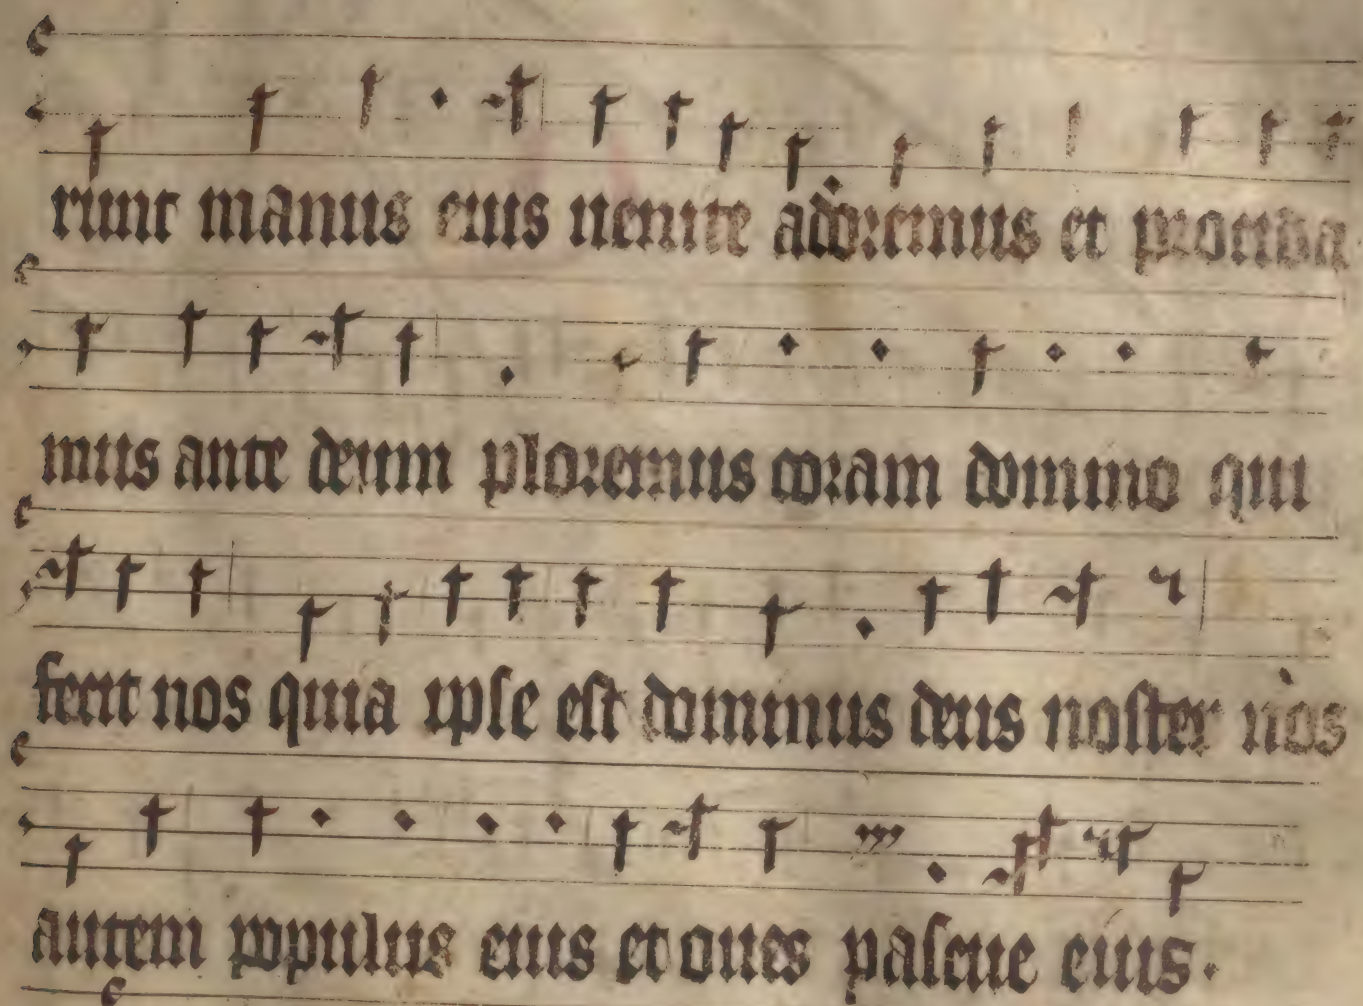 runt manus eius uenite adoremus et procida
mus ante deum ploremus coram domino qui
fecit nos quia ipse est dominus deus noster nos
autem populus eius et oues pascue eius.